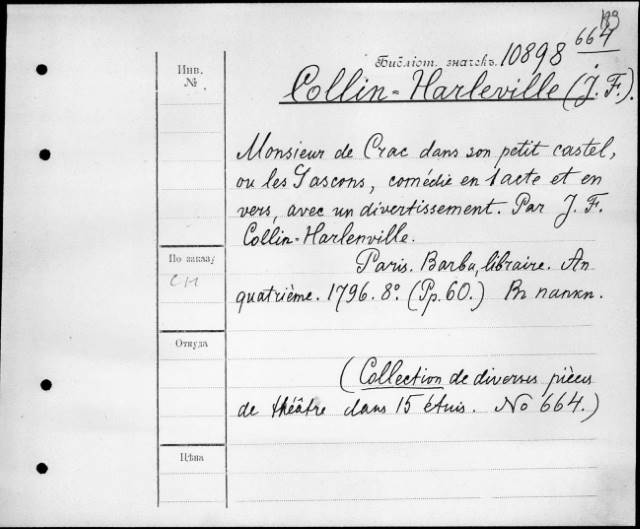 664
Библіот. значекъ. 10898
Инв.
№
Collin-Harleville (J. F.).
Monsieur de Crac dans son petit castel,
ou les Gascons, comédie en 1 acte et en
vers, avec un divertissement. Par J. F.
Collin-Harlenville.
По заказу
СП
Paris. Barba, libraire. An
quatrième. 1796. 8°. (Pp. 60.) Въ папкѣ.
Откуда
(Collection de diverses pièces
de théâtre dans 15 étuis. No 664.)
Цѣна